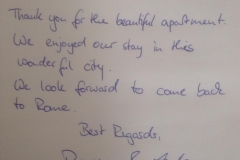 Thank you for the beautiful apartment.
We enjoyed our stay in this
wonderful city.
We look forward to come back
to Rome.
Best Regards,